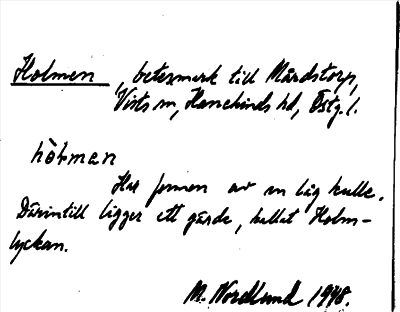 Holmen, betesmark till Mårdstorp,
Vists sn, Hanekinds hd, Östg. l.
hòlmen
Har formen av en låg kulle.
Därintill ligger ett gärde, kallat Holm-
lyckan.
M. Nordlund 1948.